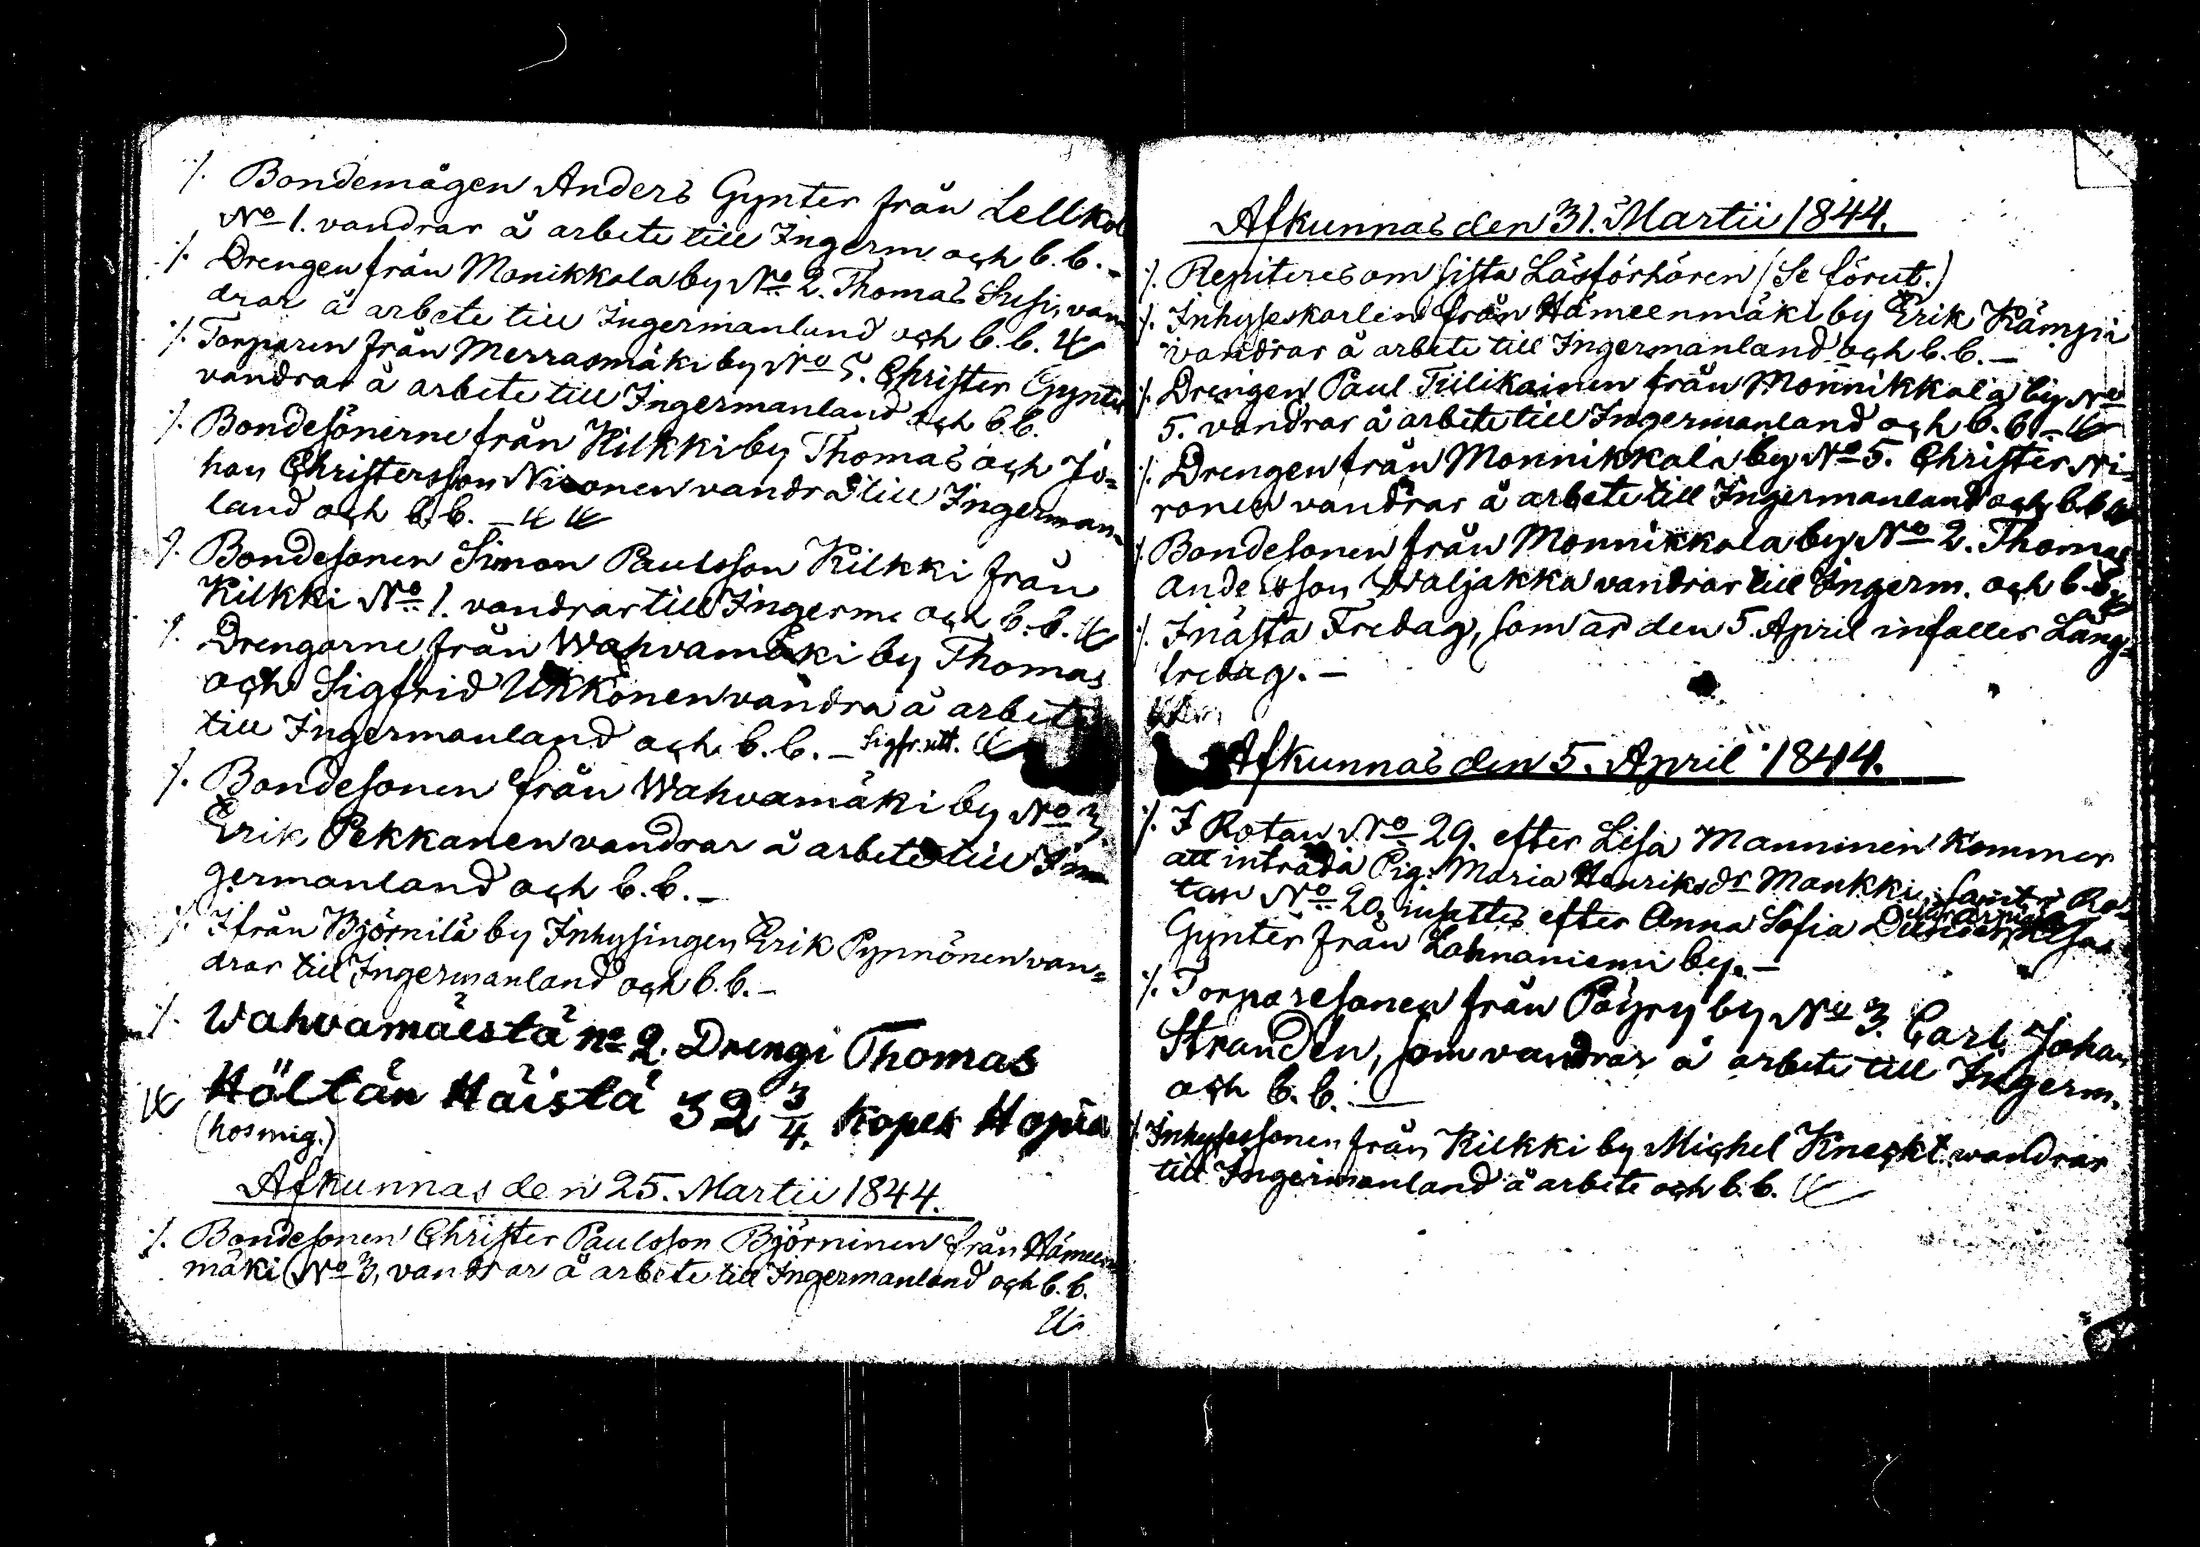 ٪. Bondemågen Anders Gynter från Lellkol
No 1. vandrar å arbete till Ingerm. och b.b. -
٪. Drengen från Monikkala by No 2. Thomas Susi, van-
drar å arbete till Ingermanland och b.b.
٪. Torparen från Merrasmäki by No 5. Christer Gynter
vandrar å arbete till Ingermanland och b.b.
٪. Bondesönerne från Kilkki by Thomas och Jo=
han Christersson Nironen vandra till Ingerman-
land och b.b. -
٪. Bondesonen Simon Paulsson Kilkki från
Kilkki No 1. vandrar till Ingerm. och b.b.
٪. Drengarne från Wahvamäki by Thomas
och Sigfrid Ukkonen vandra å arbete
till Ingermanland och b.b. - Sigfr. utt.
٪. Bondesonen från Wahvamäki by No 3
Erik Pekkanen vandrar å arbete till In-
germanland och b.b. -
٪. Ifrån Björnilä by Inhysingen Erik Pynnönen van=
drar till Ingermanland och b.b. -
٪. Wahvamäestä no 2. Drengi Thomas
Höltän Häistä 32 3/4. Kopek Hopia
(hosmig.)
Afkunnas den 25. Martii 1844.
٪. Bondesonen Christer Paulsson Björninen från Hämeen
mäki No 3, vandrar å arbete till Ingermanland och b.b.
Afkunnas den 31. Martii 1844.
٪. Repiteres om sista Läsförhören (Se förut.)
٪. Inhyseskarlen från Hämeenmäki by Erik Kämpii
vandrar å arbete till Ingermanland och b.b. -
٪. Drengen Paul Tiilikainen från Monnikkala by No
5. vandrar å arbete till Ingermanland och b.b. -
٪. Drengen från Monnikkala by No 5. Christer Ni=
ronen vandrar å arbete till Ingermanland och b.b.
٪. Bondesonen från Monnikkala by No 2. Thomas
Andersson Waljakka vandrar till Ingerm. och b.b.
٪. I nästa Fredag, som är den 5 April infaller Lång=
fredag. -
Afkunnas den 5. April 1844.
٪. I Rotan No 29. efter Lisa Manninen kommer
att inträda Pig. Maria Henriksdr Mankki, samt i Ro=
tan No 20. insättes efter Anna Sofia
Gynter från Lahnaniemi by. -
٪. Torparesonen från Päyry by No 3. Carl Johan
Strandén, som vandrar å arbete till Ingerm.
och b.b. -
٪. Inhysessonen från Kilkki by Michel Kneckt wandrar
till Ingermanland å arbete och b.b.